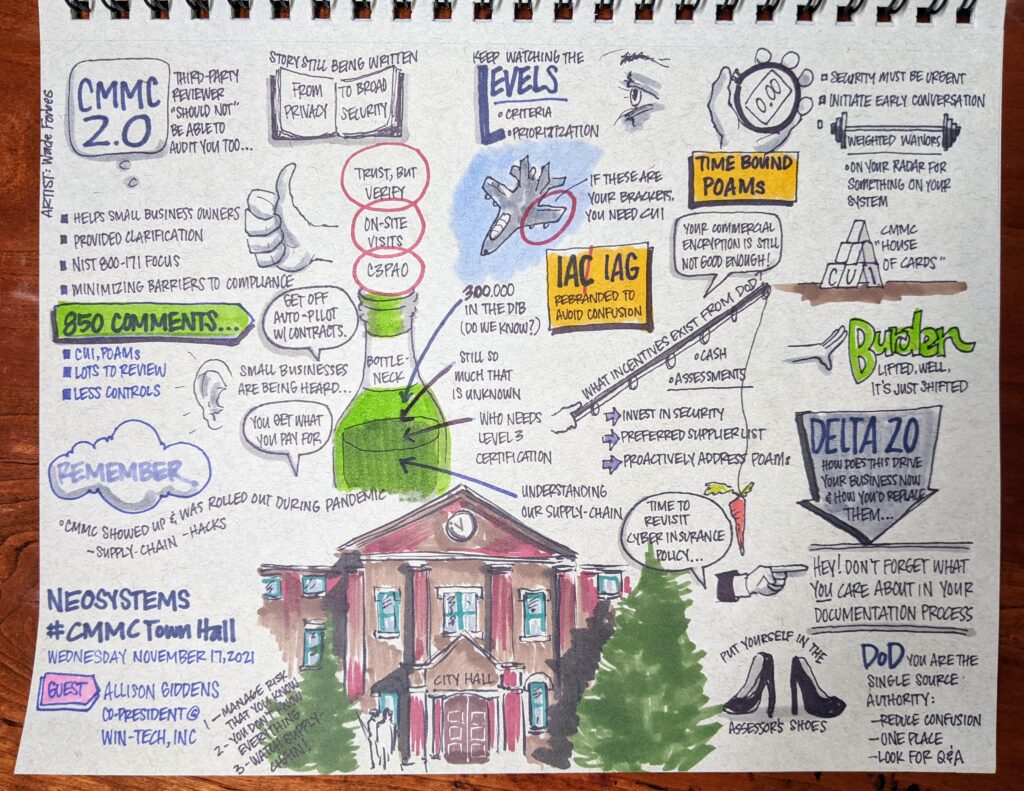 ARTIST: Wade Forbes
CMMC
2.0
THIRD-PARTY
REVIEWER
"SHOULD NOT"
BE ABLE TO
AUDIT YOU TOO...
STORY STILL BEING WRITTEN
FROM
PRIVACY
TO BROAD
SECURITY
KEEP WATCHING THE
LEVELS
CRITERIA
PRIORITIZATION
0.00
TIME BOUND
POAMs
SECURITY MUST BE URGENT
INITIATE EARLY CONVERSATION
WEIGHTED WAIVORS
ON YOUR RADAR FOR
SOMETHING ON YOUR
SYSTEM
HELPS SMALL BUSINESS OWNERS
PROVIDED CLARIFICATION
NIST 800-171 FOCUS
MINIMIZING BARRIERS TO COMPLIANCE
TRUST, BUT
VERIFY
ON-SITE
VISITS
C3PAO
IF THESE ARE
YOUR BRACKETS,
YOU NEED CUI
IAC IAG
REBRANDED TO
AVOID CONFUSION
YOUR COMMERCIAL
ENCRYPTION IS STILL
NOT GOOD ENOUGH!
CMMC
"HOUSE
OF CARDS"
CUI
850 COMMENTS...
CUI, POAMs
LOTS TO REVIEW
LESS CONTROLS
GET OFF
AUTO-PILOT
W/ CONTRACTS.
SMALL BUSINESSES
ARE BEING HEARD...
YOU GET WHAT
YOU PAY FOR
BOTTLE-
NECK
300,000
IN THE DIB
(DO WE KNOW?)
STILL SO
MUCH THAT
IS UNKNOWN
WHO NEEDS
LEVEL 3
CERTIFICATION
UNDERSTANDING
OUR SUPPLY-CHAIN
WHAT INCENTIVES EXIST FROM DoD?
CASH
ASSESSMENTS
INVEST IN SECURITY
PREFERRED SUPPLIER LIST
PROACTIVELY ADDRESS POAMs
Burden
LIFTED, WELL,
IT'S JUST SHIFTED
DELTA 20
HOW DOES THIS DRIVE
YOUR BUSINESS NOW
& HOW YOU'D REPLACE
THEM...
REMEMBER
CMMC SHOWED UP & WAS ROLLED OUT DURING PANDEMIC
-SUPPLY-CHAIN -HACKS
TIME TO
REVISIT
CYBER INSURANCE
POLICY...
HEY! DON'T FORGET WHAT
YOU CARE ABOUT IN YOUR
DOCUMENTATION PROCESS
NEOSYSTEMS
#CMMC Town Hall
WEDNESDAY NOVEMBER 17, 2021
GUEST
ALLISON GIDDENS
CO-PRESIDENT @
WIN-TECH, INC
1 - MANAGE RISK
THAT YOU KNOW
2 - YOU DON'T KNOW
EVERYTHING
3 - WATCH SUPPLY-
CHAIN!
CITY HALL
PUT YOURSELF IN THE
ASSESSOR'S SHOES
DoD YOU ARE THE
SINGLE SOURCE
AUTHORITY:
-REDUCE CONFUSION
-ONE PLACE
-LOOK FOR Q&A